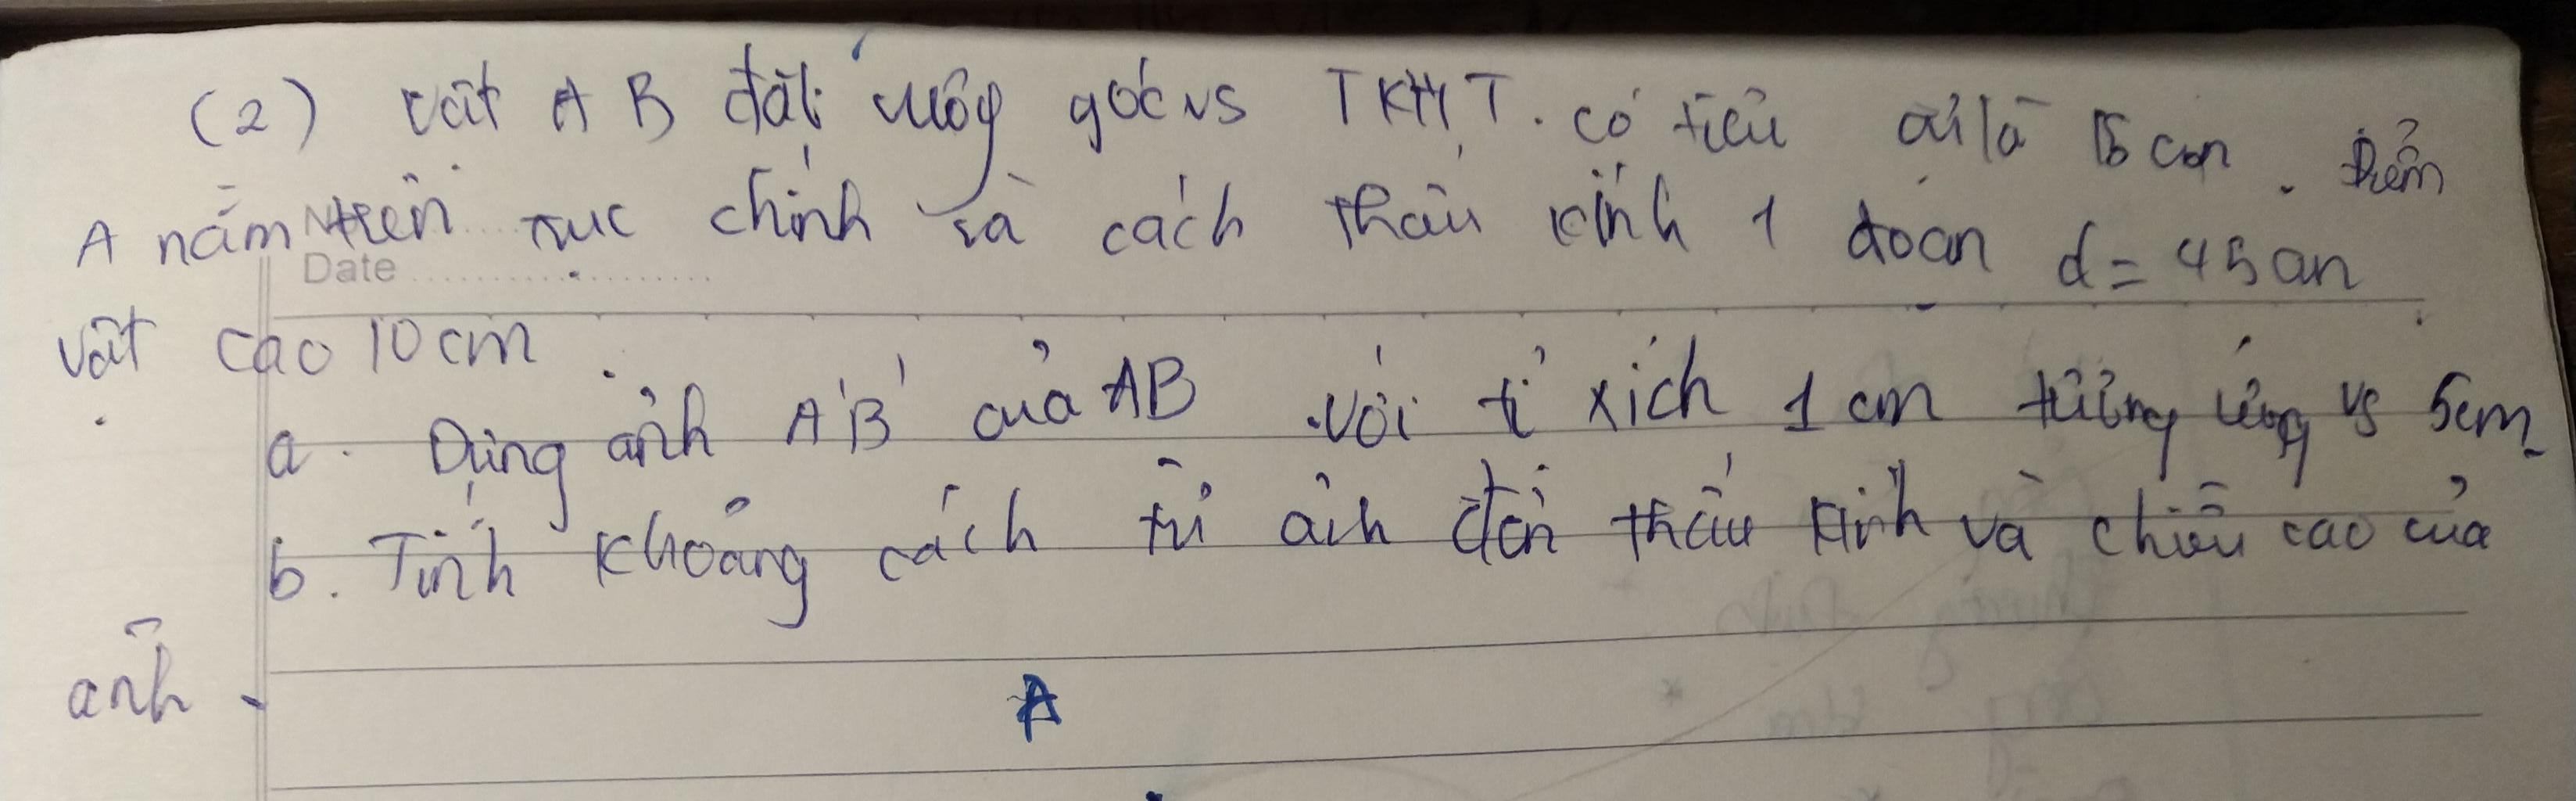 (2) vật AB đặt vuông góc vs TKHT. có tiêu cự là 15 cm. Điểm
A nằm trên trục chính và cách thấu kính 1 đoạn d = 45cm
Date
vật cao 10cm.
a. Dựng ảnh A'B' của AB với tỉ xích 1 cm tương ứng vs 5cm.
b. Tính khoảng cách từ ảnh đến thấu kính và chiều cao của
ảnh.
A